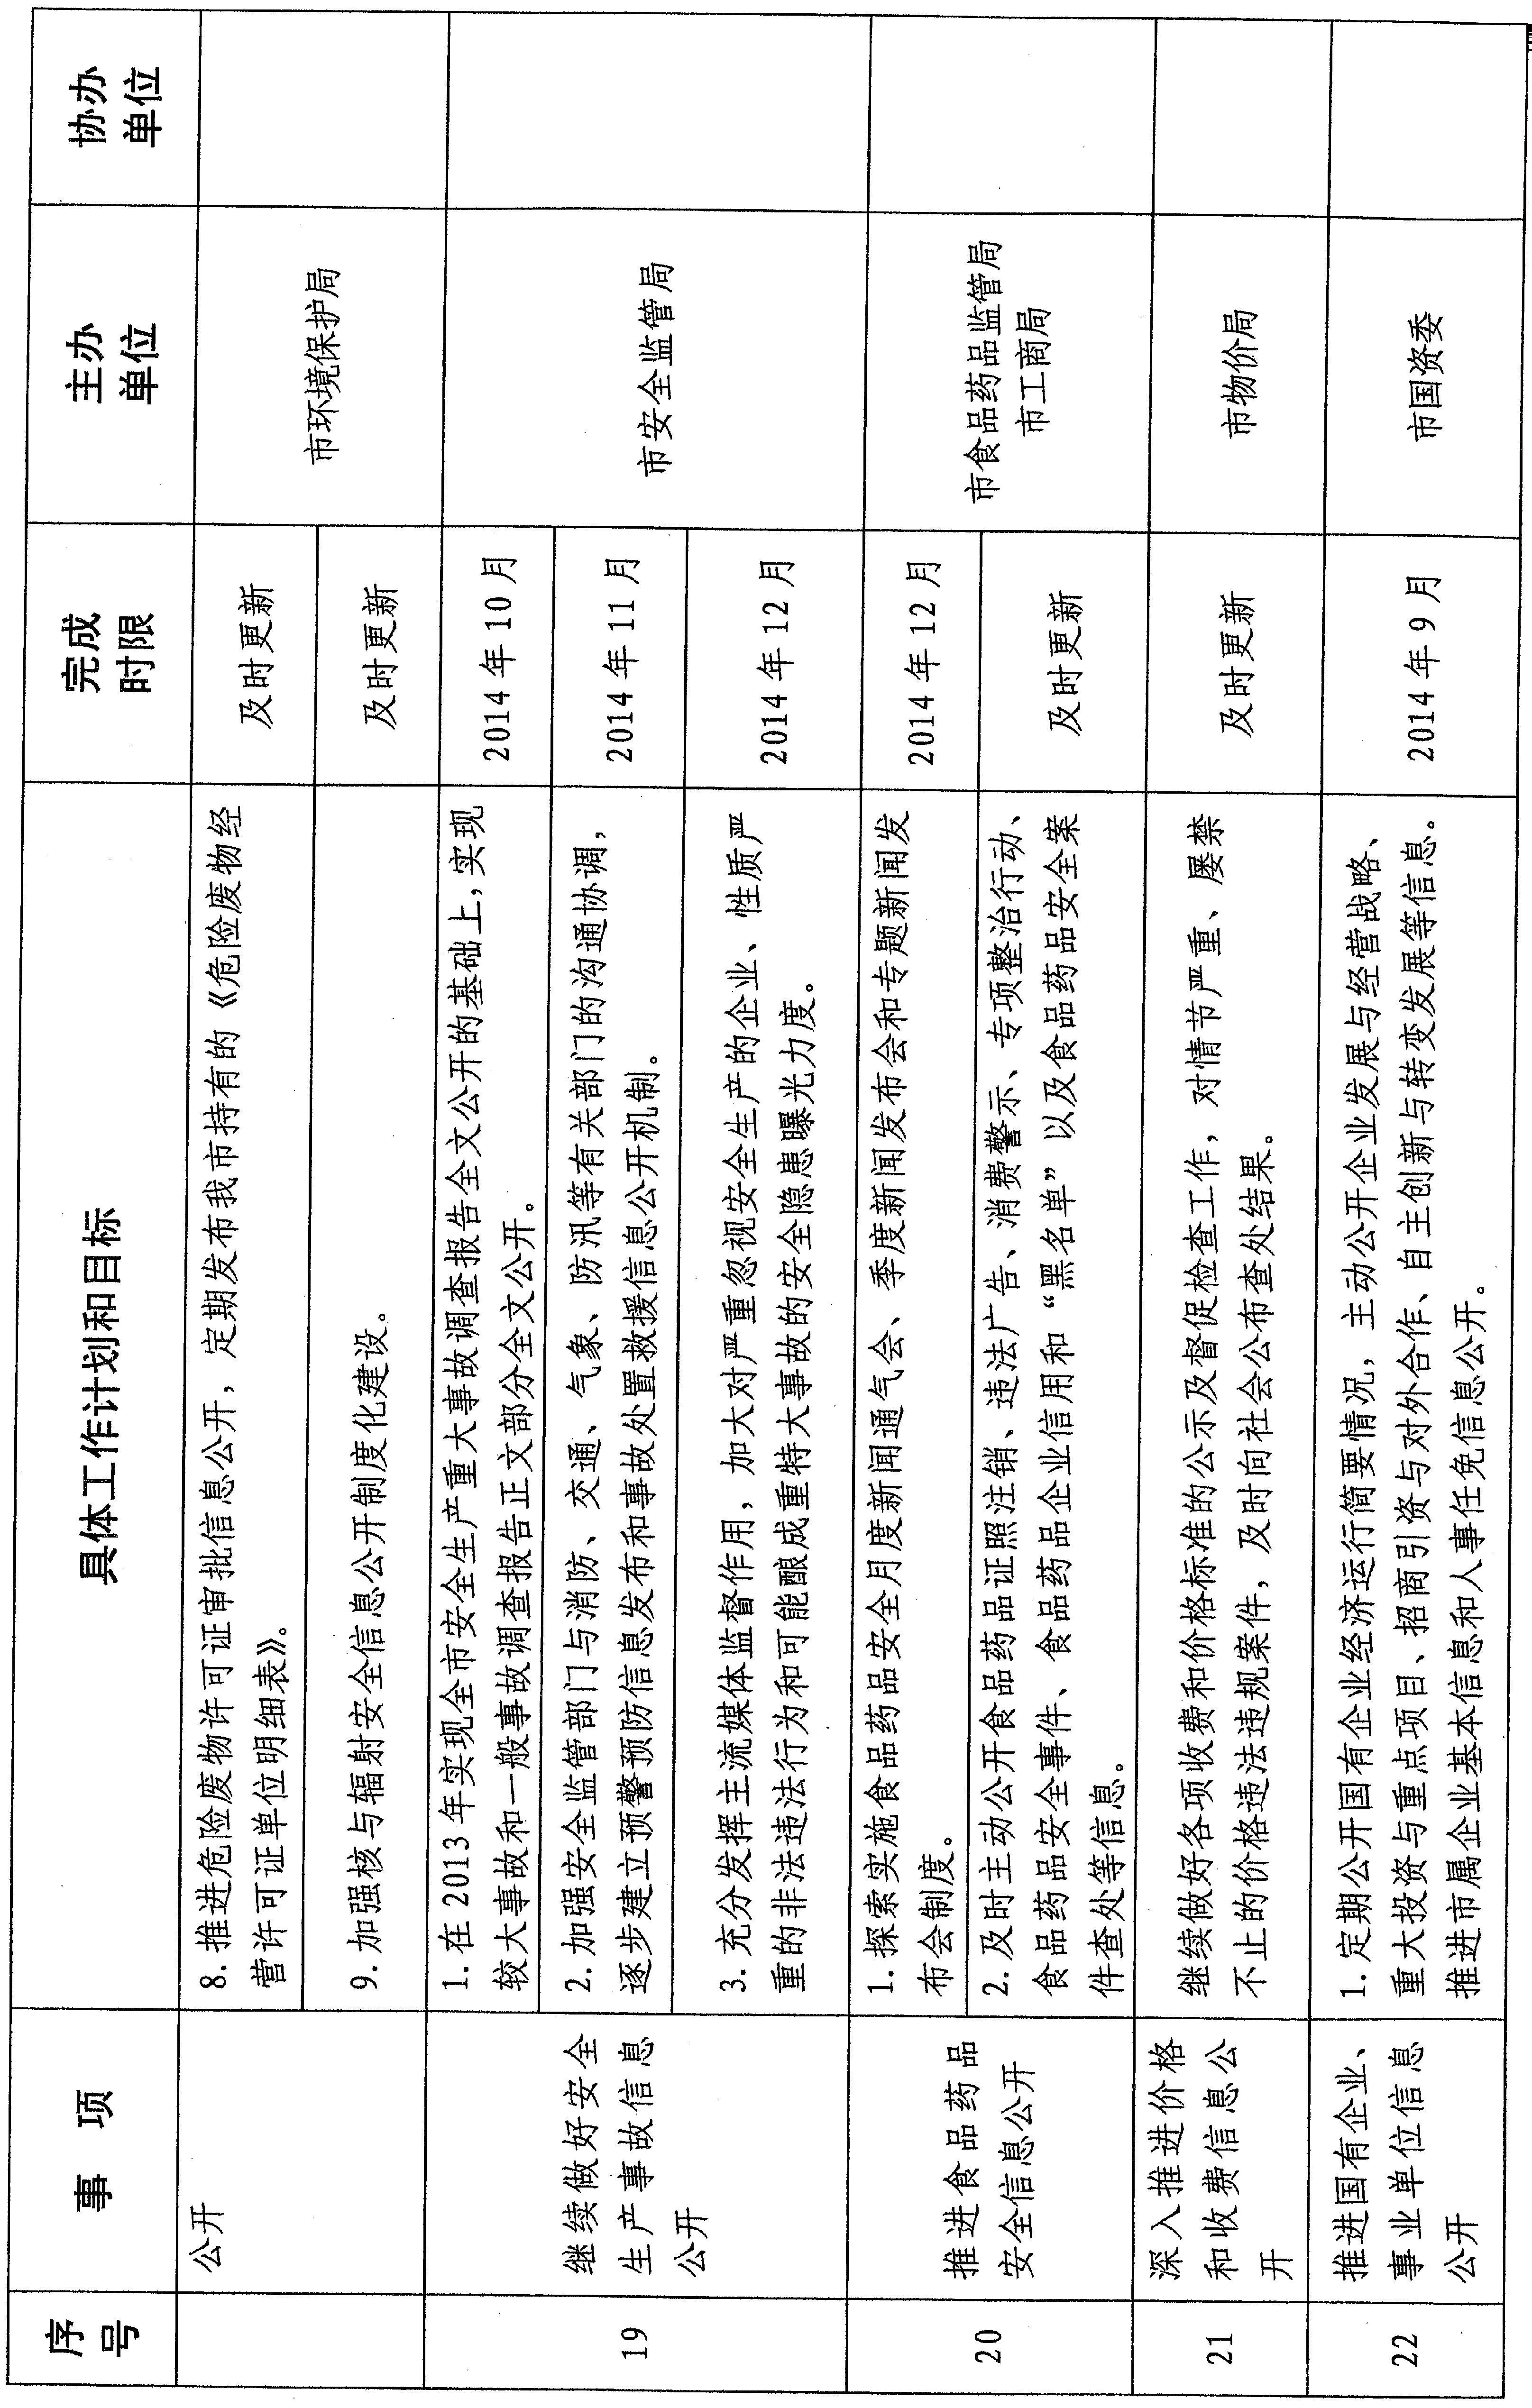 序号
事 项
具体工作计划和目标
完成时限
主办单位
协办单位
公开
8.推进危险废物许可证审批信息公开，定期发布我市持有的《危险废物经
营许可证单位明细表》。
及时更新
市环境保护局
9.加强核与辐射安全信息公开制度化建设。
及时更新
19
继续做好安全
生产事故信息
公开
1.在2013年实现全市安全生产重大事故调查报告全文公开的基础上，实现
较大事故和一般事故调查报告正文部分全文公开。
2014年10月
市安全监管局
2.加强安全监管部门与消防、交通、气象、防汛等有关部门的沟通协调，
逐步建立预警预防信息发布和事故处置救援信息公开机制。
2014年11月
3.充分发挥主流媒体监督作用，加大对严重忽视安全生产的企业、性质严
重的非法违法行为和可能酿成重特大事故的安全隐患曝光力度。
2014年12月
20
推进食品药品
安全信息公开
1.探索实施食品药品安全月度新闻通气会、季度新闻发布会和专题新闻发
布会制度。
2014年12月
市食品药品监管局
市工商局
2.及时主动公开食品药品证照注销、违法广告、消费警示、专项整治行动、
食品药品安全事件、食品药品企业信用和“黑名单”以及食品药品安全案
件查处等信息。
及时更新
21
深入推进价格
和收费信息公
开
继续做好各项收费和价格标准的公示及督促检查工作，对情节严重、屡禁
不止的价格违法违规案件，及时向社会公布查处结果。
及时更新
市物价局
22
推进国有企业、
事业单位信息
公开
1.定期公开国有企业经济运行简要情况，主动公开企业发展与经营战略、
重大投资与重点项目、招商引资与对外合作、自主创新与转变发展等信息。
推进市属企业基本信息和人事任免信息公开。
2014年9月
市国资委